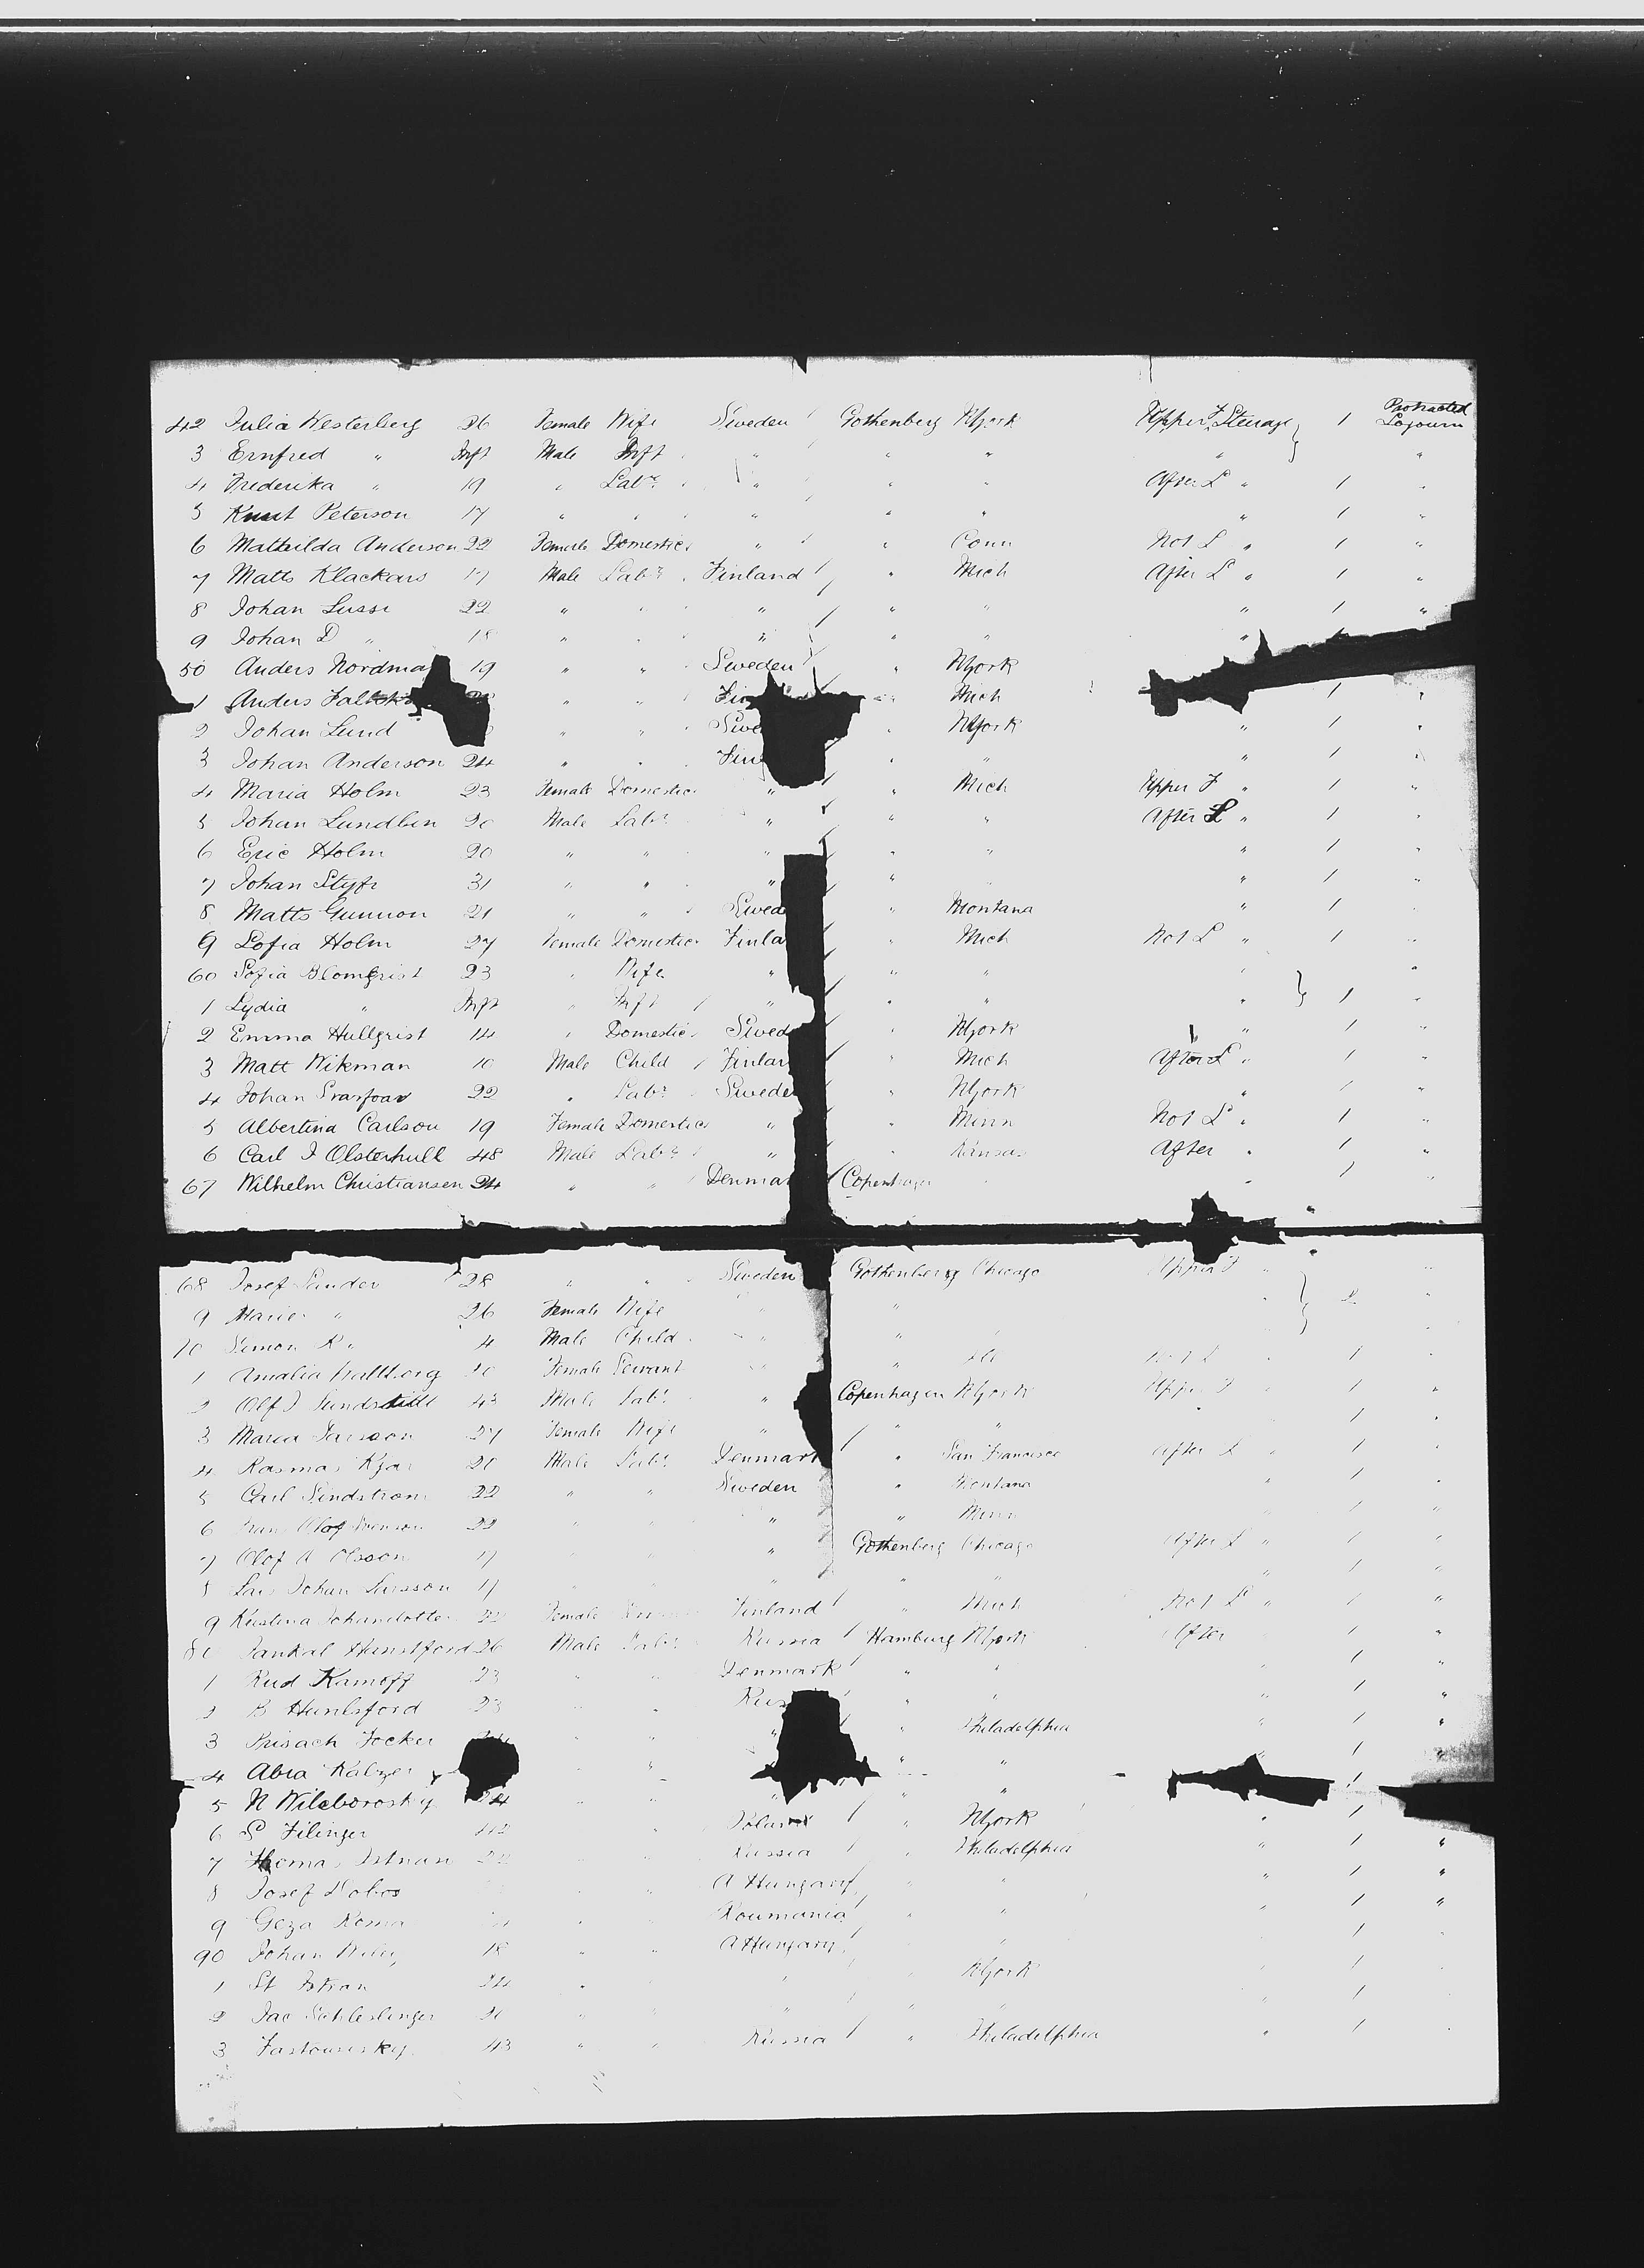 42 Julia Westerberg 26 Female Wife Sweden Gothenberg NYork Upper F. Steerage 1 Protracted Sojourn
3 Ernfred " Inft Male Inft " " " " "
4 Frederika " 19 " Labr " " " After L " 1 "
5 Knut Peterson 17 " " " " " " 1 "
6 Mathilda Anderson 22 Female Domestic " " Conn Not L " 1 "
7 Matts Klackars 17 Male Labr Finland " Mich After L " 1 "
8 Johan Lussi 22 " " " " " " 1 "
9 Johan D " 18 " " " " " "
50 Anders Nordma 19 " " Sweden " NYork
1 Anders 28 " " Fin " Mich 1 "
2 Johan Lund " " Swe " NYork " 1 "
3 Johan Anderson 24 " " Fin " " " 1 "
4 Maria Holm 23 Female Domestic " " Mich Upper F " 1 "
5 Johan Lundbin 20 Male Labr " " " After L " 1 "
6 Eric Holm 20 " " " " " " 1 "
7 Johan Styfe 31 " " " " " " 1 "
8 Matts Gunnon 21 " " Swed " Montana " 1 "
9 Sofia Holm 27 Female Domestic Finla " Mich Not L " 1 "
60 Sofia Blomqrist 23 " Wife " " " " "
1 Lydia " Inft " Inft " " " " 1 "
2 Emma Hullqrist 14 " Domestic Swed " NYork " 1 "
3 Matt Wikman 10 Male Child Finlan " Mich After L " 1 "
4 Johan 22 " Labr Swede " NYork " 1 "
5 Albertina Carlson 19 Female Domestic " " Minn Not L " 1 "
6 Carl J Olsterhull 48 Male Labr " " Kansas After " 1 "
67 Wilhelm Christiansen 24 " " Denmar Copenhagen " " 1 "
68 Josef Sander 28 " " Sweden Gothenberg Chicago Upper F " "
9 Marie " 26 Female Wife " " " 2 "
70 Simon R " 4 Male Child " " " "
1 Amalia 20 Female Servant " " Not L " 1
2 Olf J 43 Male Labr " Copenhagen NYork Upper F " 1 "
3 Maria 27 Female Wife " " " 1 "
4 Rasmus Kjar 20 Male Labr Denmark " San Francisco After L " 1 "
5 Carl Lindstrom 22 " " Sweden " Montana " 1 "
6 Olof Svenson 22 " " " " Minn " 1 "
7 Olof A Olsson 17 " " " Gothenberg Chicago After L " 1 "
8 Lars Johan Larsson 17 " " " " " " 1 "
9 Kristina Johandotter 22 Female Finland " Mich Not L " 1 "
80 Jankal 26 Male Labr Russia Hamburg NYork After 1 "
1 Rud Kamoff 23 " " Denmark " " " 1 "
2 B Hunlsford 23 " " Rus " " " 1 "
3 Prisach Focker " " " " Philadelphia " 1 "
4 Abra Kalzer " " " " " 1 "
5 N Wilcborosky 24 " " " " 1
6 S Filinger 42 " Poland " NYork " 1
7 Thomas Istvan 22 " " Russia " Philadelphia " 1 "
8 Josef Dobos " " A Hungary " " " 1 "
9 Geza Roma " " Roumania " " " 1 "
90 Johan 18 " " A Hungary " " 1
1 St Istvan 24 " " " NYork " 1
2 Jac Schleslinger 20 " " " " " " 1
3 Fastowsky 43 " " Russia " Philadelphia " 1